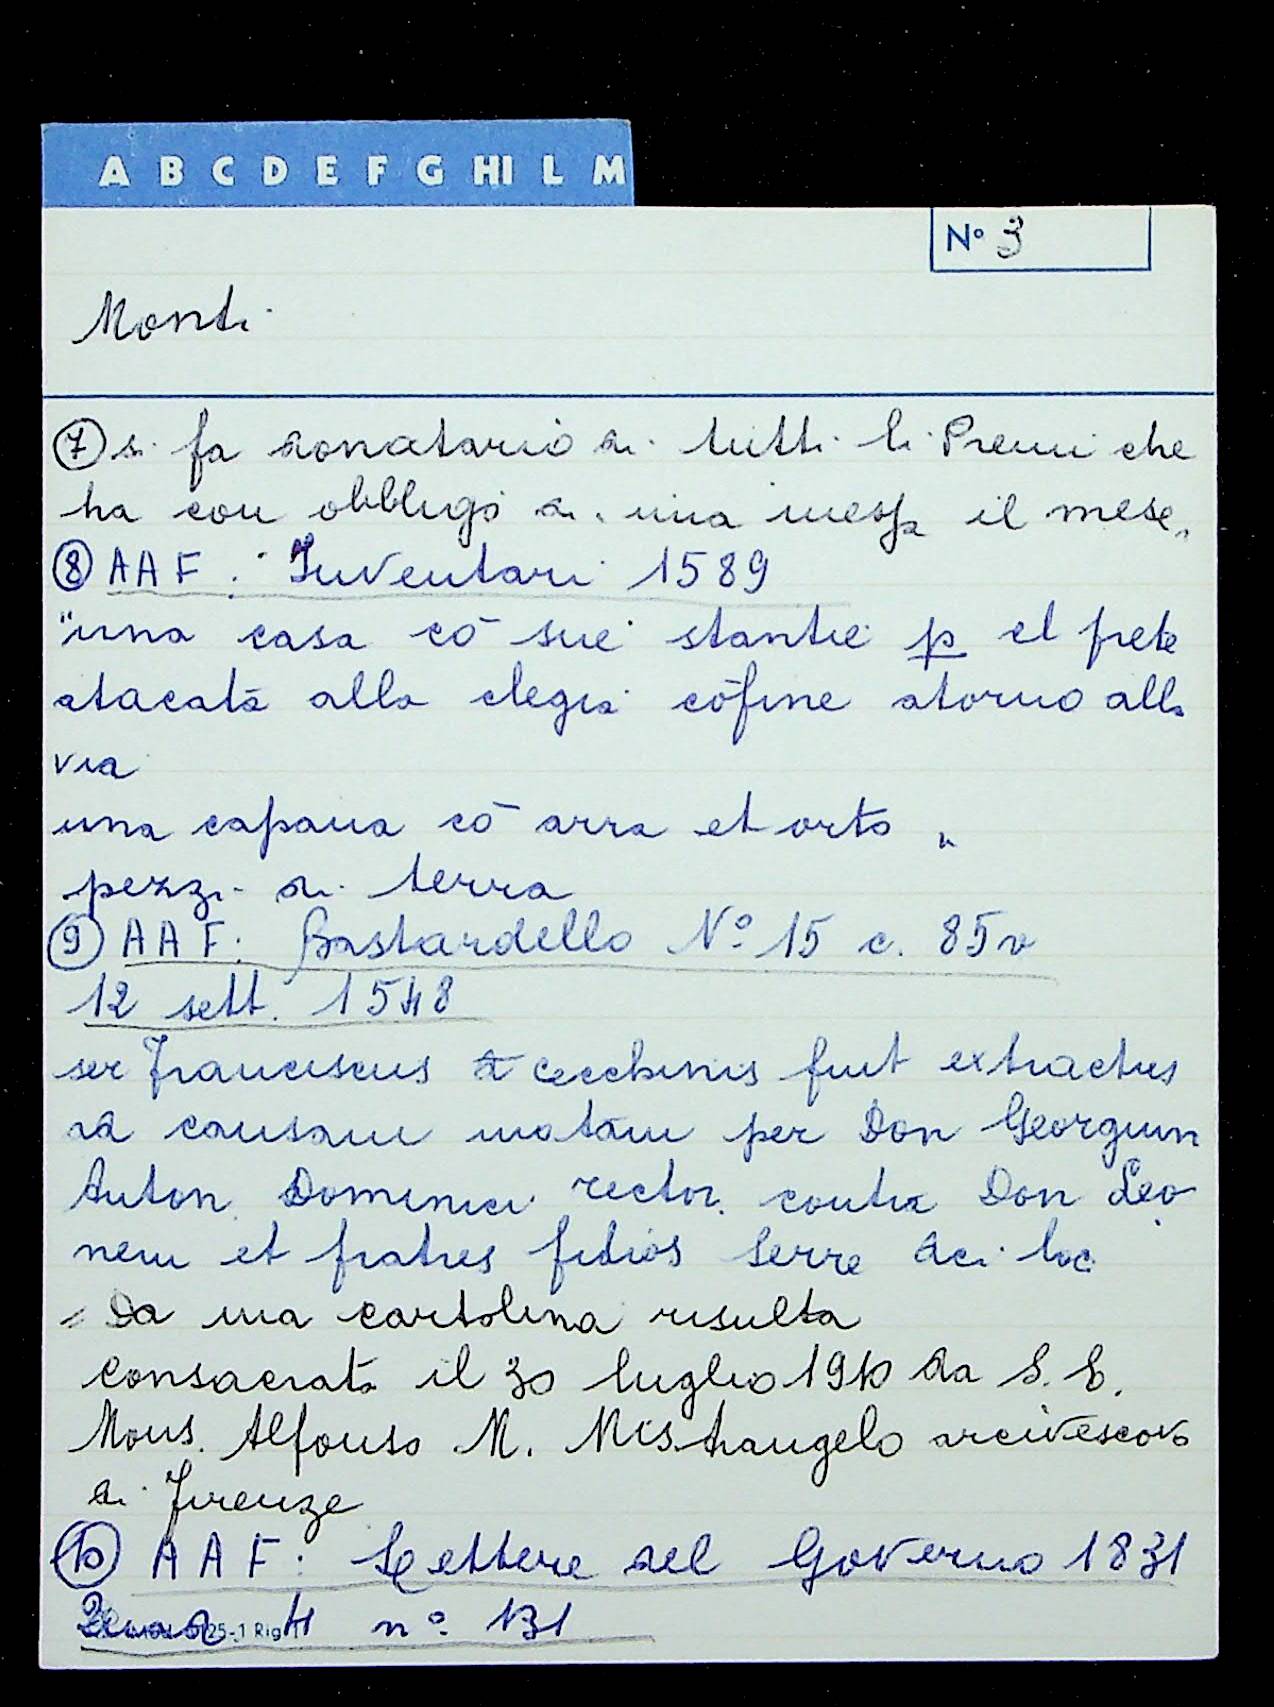 A B C D E F G HI L M
N° 3
Monti
⑦ si fa donatario di tutti li Premi che
ha con obbligo di una messa il mese.
⑧ AAF: Inventari 1589
"una casa cō sue stantie p el prete
atacata alla clegia cōfine atorno alla
via
una capana cō arra et orto "
pezzi di terra
⑨ AAF: Bastardello N° 15 c. 85v
12 sett. 1548
ser Franciscus de Cecchinis fuit extractus
ad causam motam per Don Georgium
Anton Dominici rector. contra Don Leo
nem et fratres filios Serre dci loc
Da una cartolina risulta
consacrata il 30 luglio 1910 da S. E.
Mons. Alfonso M. Mistrangelo arcivescovo
di Firenze
⑩ AAF: Lettere del Governo 1831
4 n° 131
25-1 Rig